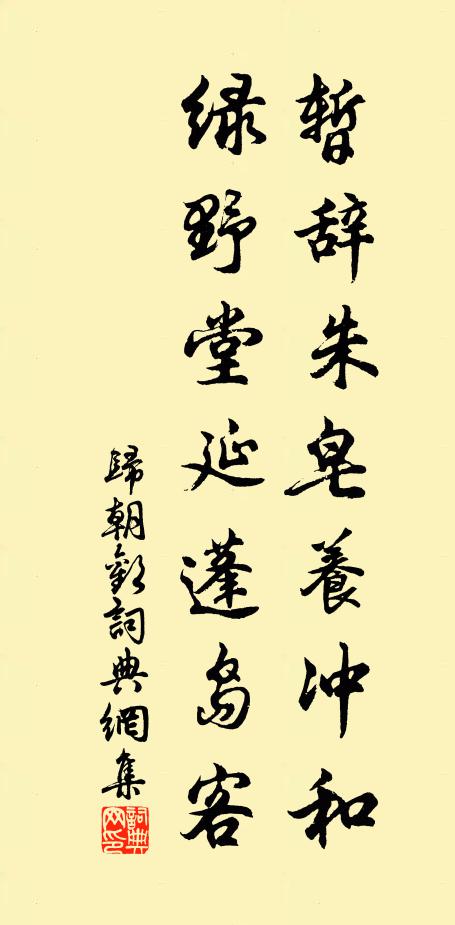 暫辞朱皂養冲和
緑野堂延蓬岛客
歸朝歡詞典網集
詞典网印